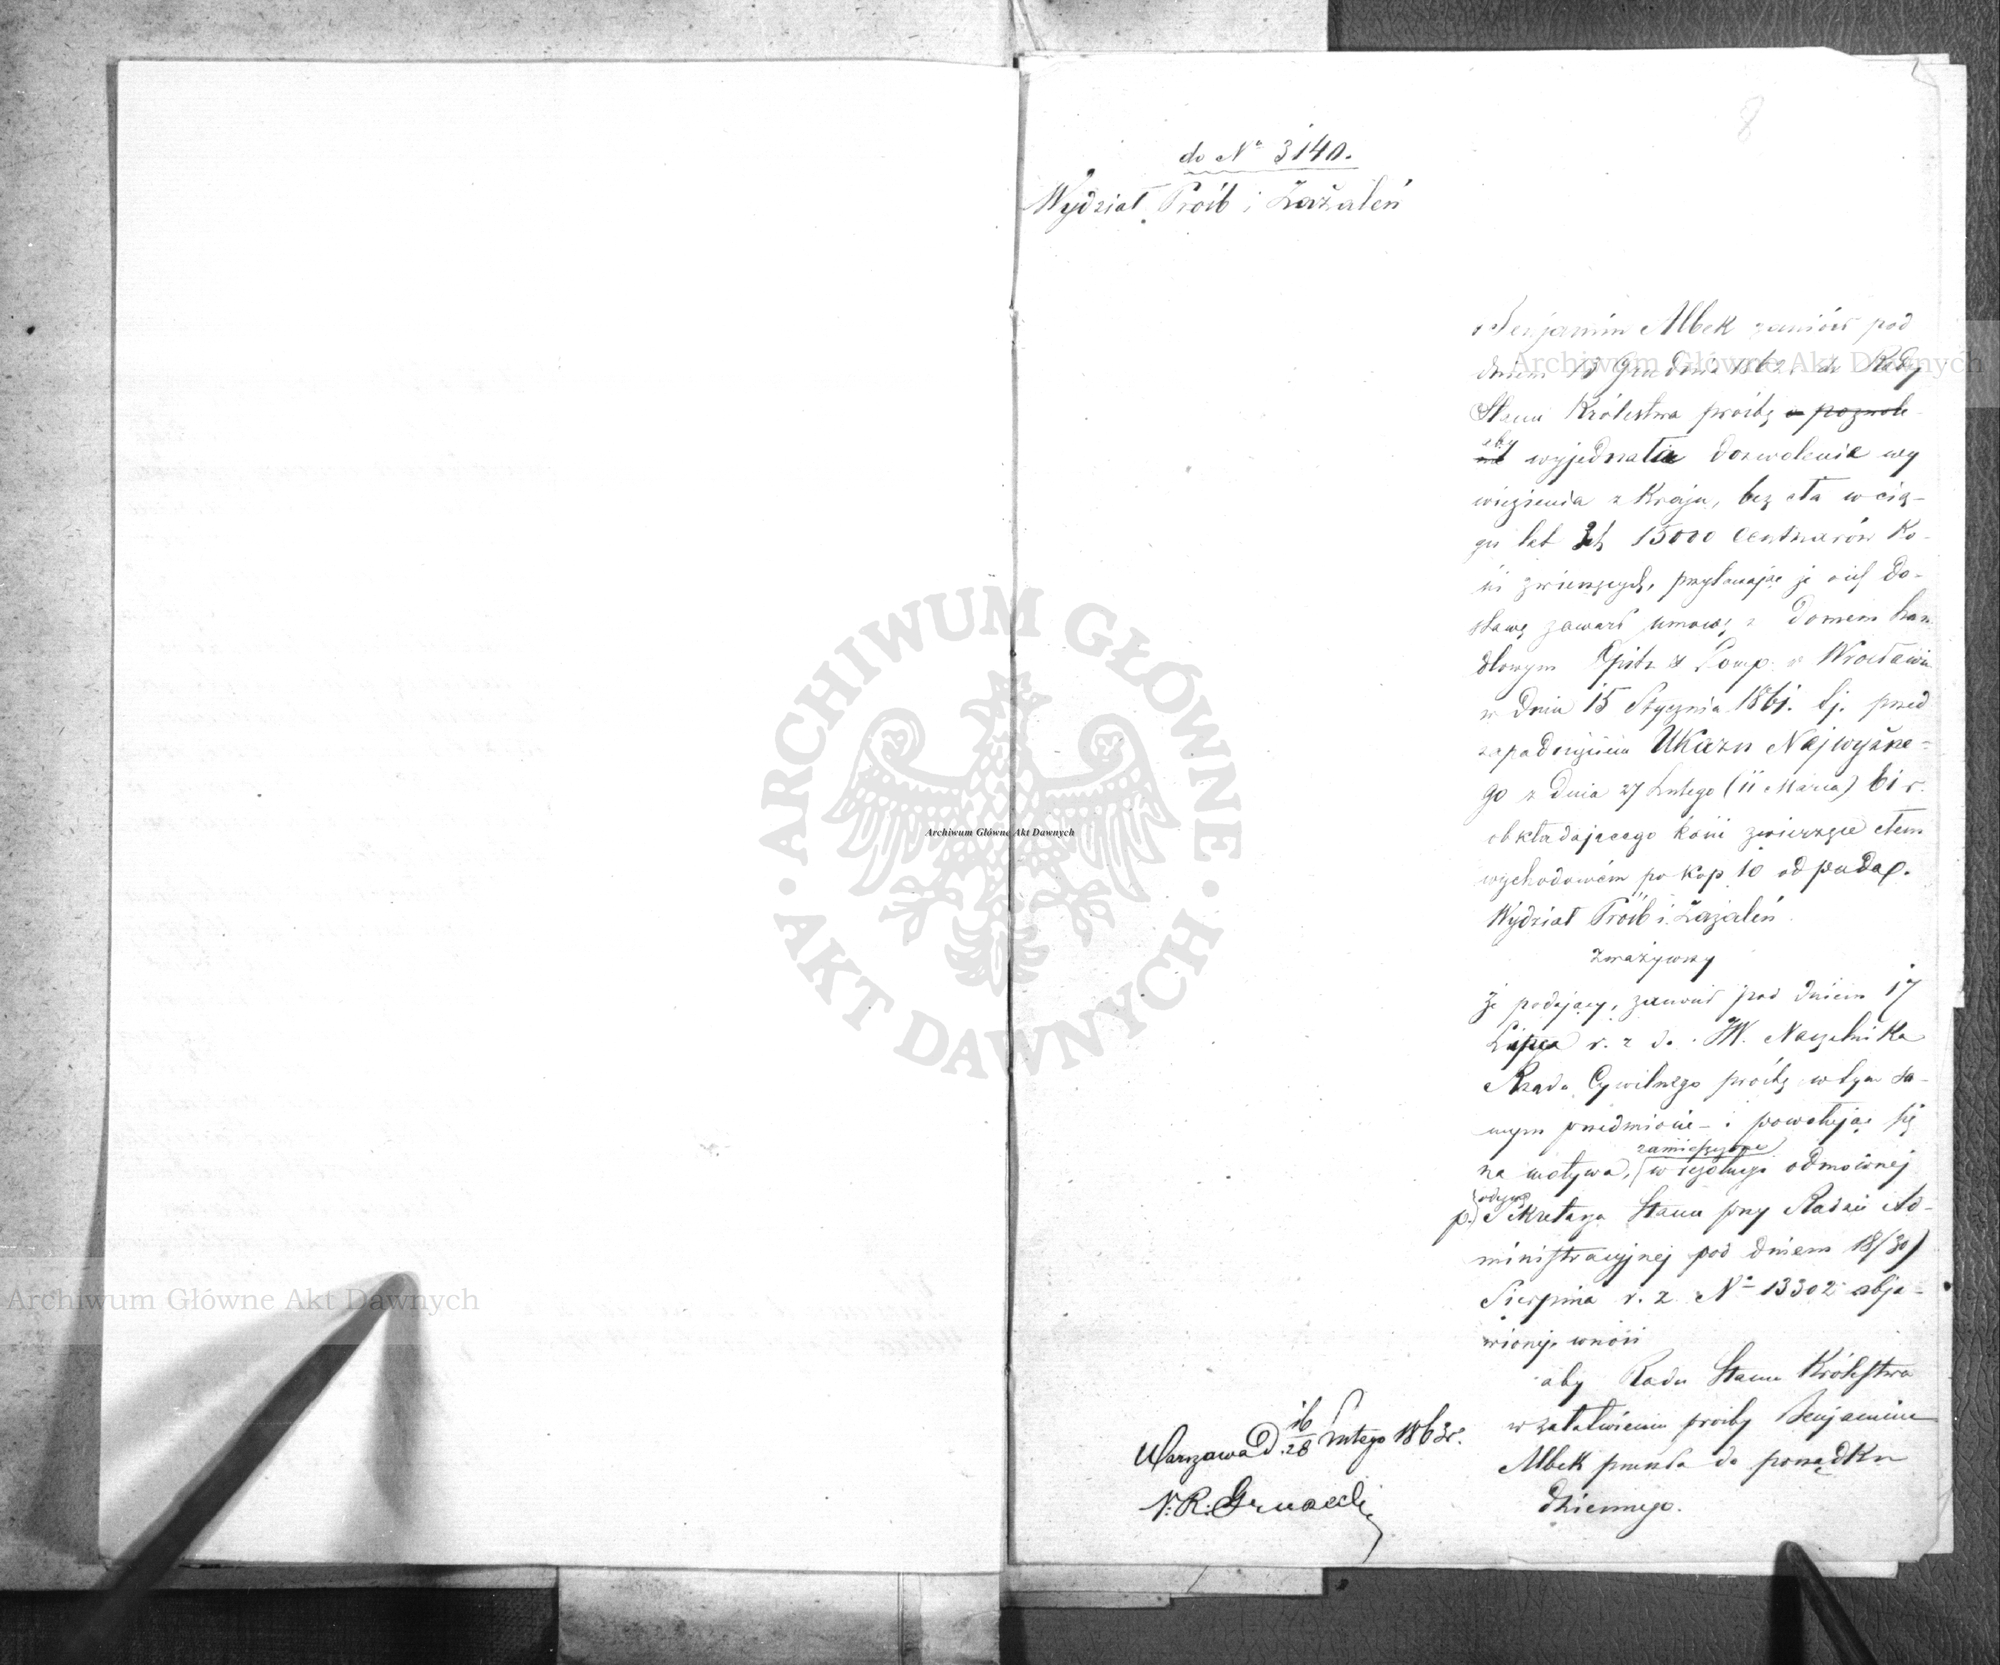 8
do No 3140.
Wydział Próśb i Zażaleń
Benjamin Albek zaniósł pod
dniem 13 Grudnia 1862 r. do Rady
Stanu Królestwa prośbę o pozwole-
nie aby wyjednała dozwolenie wy
wiezienia z Kraju, bez cła w cią-
gu lat 3ch 15000 centnarów Ko-
ści zwierzęcych, na do-
stawę zawarł umowę z Domem han
dlowym & Comp. w Wrocławiu
w dniu 15 Stycznia 1861. tj. przed
zapadnięciem Ukazu Najwyższe-
go z dnia 27 Lutego (11 Marca) 61 r.
obkładającego kości zwierzęce cłem
wychodowém po kop 10 od puda.
Wydział Próśb i Zażaleń
zważywszy
że podający, zaniósł pod dniem 17
Lipca r. z do JW. Naczelnika
Rządu Cywilnego prośbę w tym sa-
mym przedmiocie - i powołując się
na motywa, zamieszczone w odmownej
p. Sekretarza Stanu przy Radzie Ad-
ministracyjnej pod dniem 18/30
Sierpnia r. z. No 13302 obja-
wionej, wnosi
aby Rada Stanu Królestwa
w załatwieniu prośby Benjamina
Albek przeszła do porządku
dziennego.
Warszawa d. 16/28 Lutego 1863 r.
Archiwum Główne Akt Dawnych
Archiwum Główne Akt Dawnych
Archiwum Główne Akt Dawnych
ARCHIWUM GŁÓWNE AKT DAWNYCH